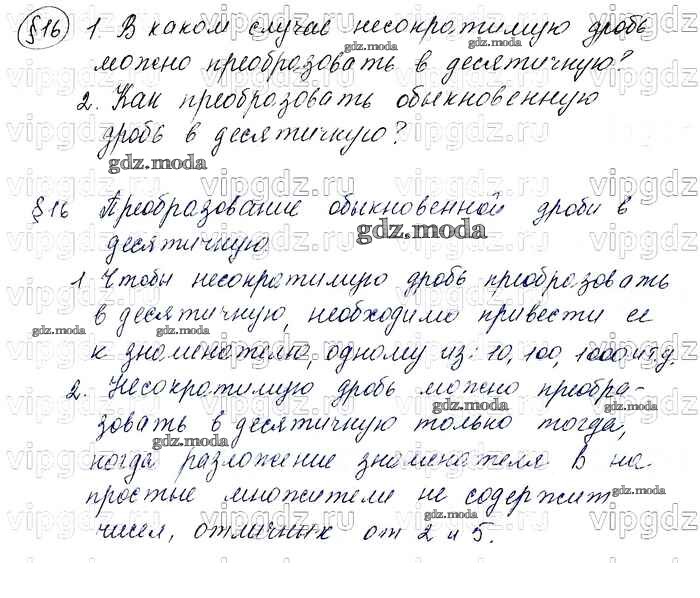 §16 1. В каком случае несократимую дробь
можно преобразовать в десятичную?
2. Как преобразовать обыкновенную
дробь в десятичную?
§16 Преобразование обыкновенной дроби в
десятичную
1 Чтобы несократимую дробь преобразовать
в десятичную, необходимо привести ее
к знаменателю, одному из: 10, 100, 1000 и т.д.
2. Несократимую дробь можно преобра-
зовать в десятичную только тогда,
когда разложение знаменателя в на
простые множители не содержит
чисел, отличных от 2 и 5.